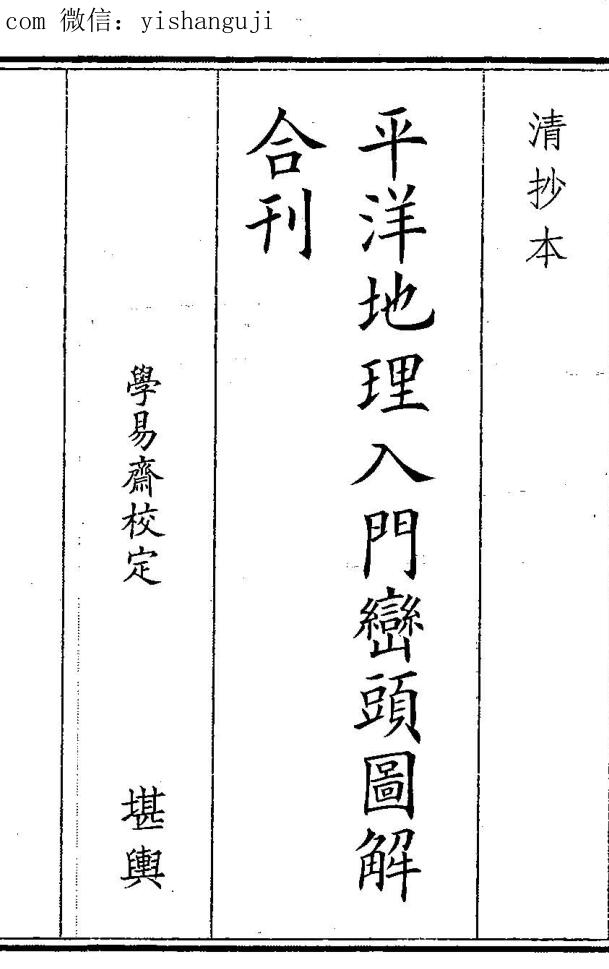 com 微信：yishanguji
清抄本
平洋地理入門巒頭圖解
合刊
學易齋校定
堪輿